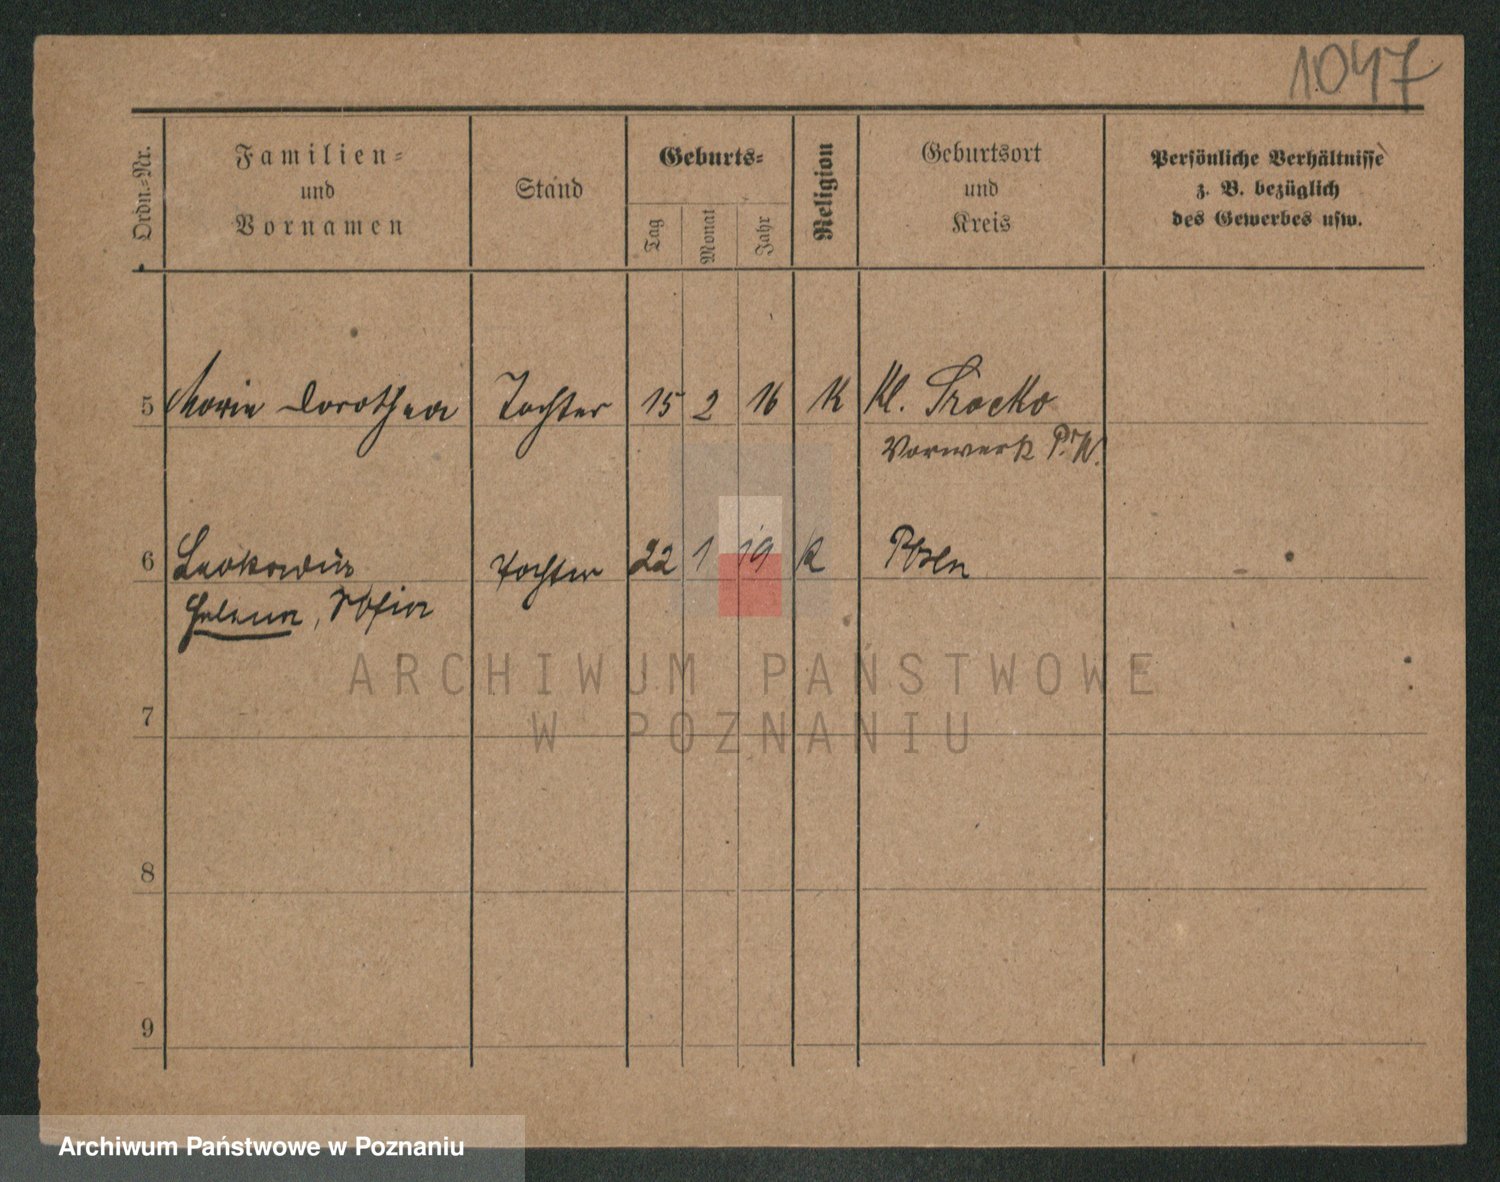 1047
Ordn.-Nr.
Familien-
und
Vornamen
Stand
Geburts-
Tag
Monat
Jahr
Religion
Geburtsort
und
Kreis
Persönliche Verhältnisse
z. B. bezüglich
des Gewerbes usw.
5 Marie Dorothea Tochter 15 2 16 K Kl.
Vorwerk
6 Tochter 22 1 19 K Posen
Helena, Sofia
ARCHIWUM PAŃSTWOWE
W POZNANIU
7
8
9
Archiwum Państwowe w Poznaniu